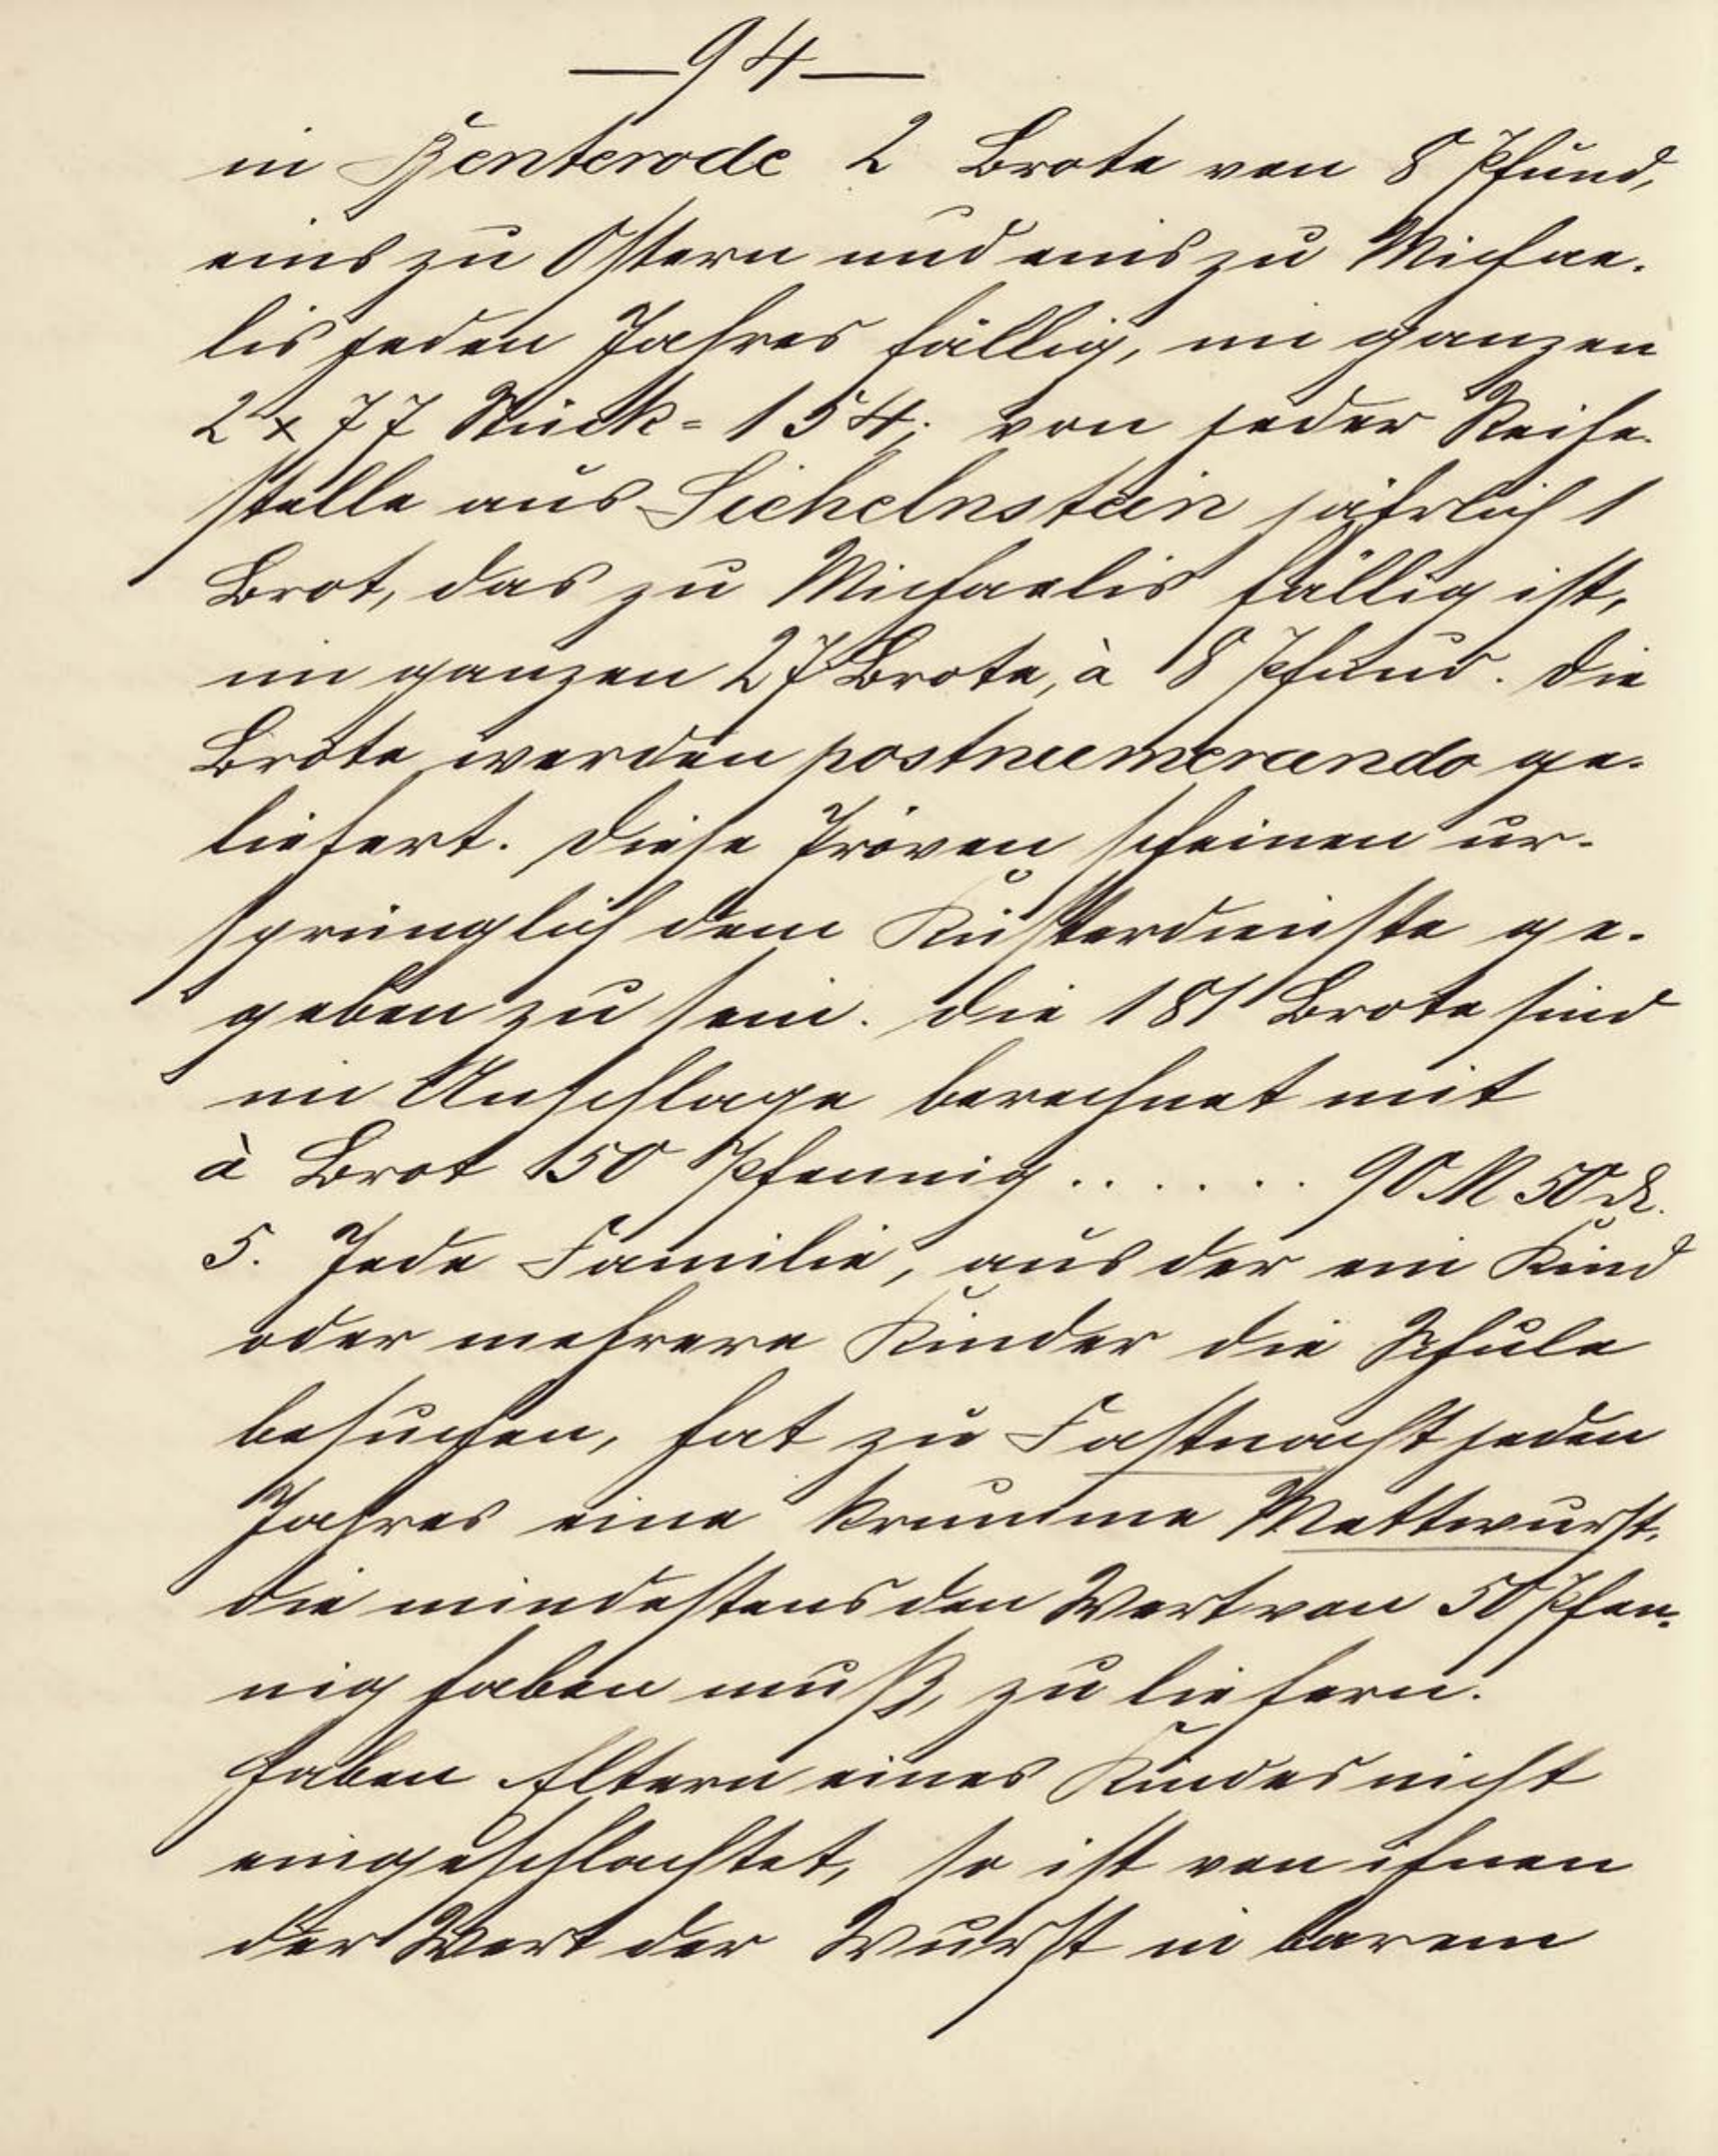 — 94 —
in Benterode 2 Brote von 8 Pfund,
eins zu Ostern und eins zu Michae-
lis jeden Jahres fällig, im ganzen
2 x 77 Stück = 154; von jeder Reihe-
stelle aus Sichelnstein jährlich 1
Brot, das zu Michaelis fällig ist,
im ganzen 27 Brote, à 8 Pfund. Die
Brote werden postnumerando ge-
liefert. Diese Pröven scheinen ur-
sprünglich dem Küsterdienste ge-
geben zu sein. Die 181 Brote sind
im Anschlage berechnet mit
à Brot 50 Pfennig . . . . . . . 90 M 50 ₰.
5. Jede Familie, aus der ein Kind
oder mehrere Kinder die Schule
besuchen, hat zu Fastnacht jeden
Jahres eine krumme Mettwurst,
die mindestens den Wert von 50 Pfen-
nig haben muß, zu liefern.
Haben Eltern eines Kindes nicht
eingeschlachtet, so ist von ihnen
der Wert der Wurst in barem